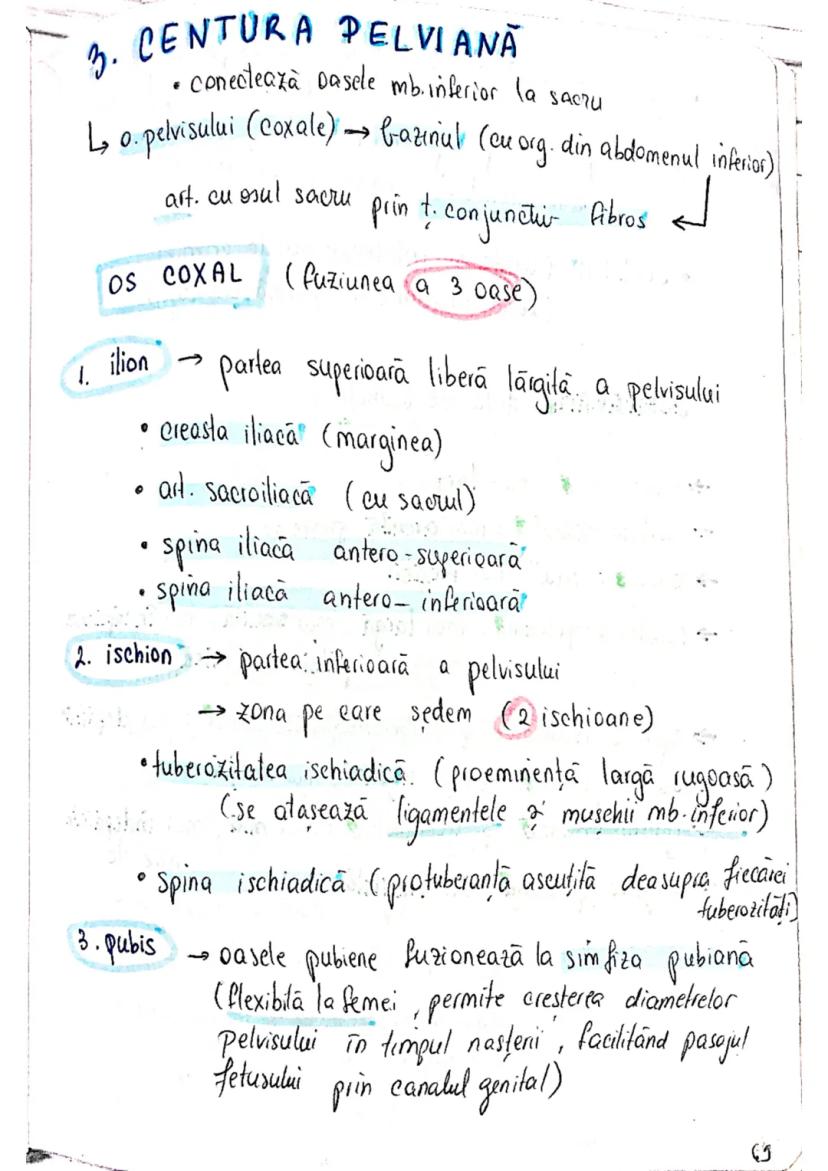 3. CENTURA PELVIANĂ
• conectează oasele mb. inferior la sacru
↳ o. pelvisului (coxale) → bazinul (cu org. din abdomenul inferior)
art. cu osul sacru prin ț. conjunctiv fibros ↵
OS COXAL (fuziunea a 3 oase)
1. ilion → partea superioară liberă lărgită a pelvisului
• creasta iliacă (marginea)
• art. sacroiliacă (cu sacrul)
• spina iliacă antero-superioară
• spina iliacă antero-inferioară
2. ischion → partea inferioară a pelvisului
→ zona pe care ședem (2 ischioane)
• tuberozitatea ischiadică (proeminență largă rugoasă)
(se atașează ligamentele și mușchii mb. inferior)
• spina ischiadică (protuberanță ascuțită deasupra fiecărei
tuberozități)
3. pubis → oasele pubiene fuzionează la simfiza pubiană
(flexibilă la femei, permite creșterea diametrelor
pelvisului în timpul nașterii, facilitând pasajul
fetusului prin canalul genital)
69